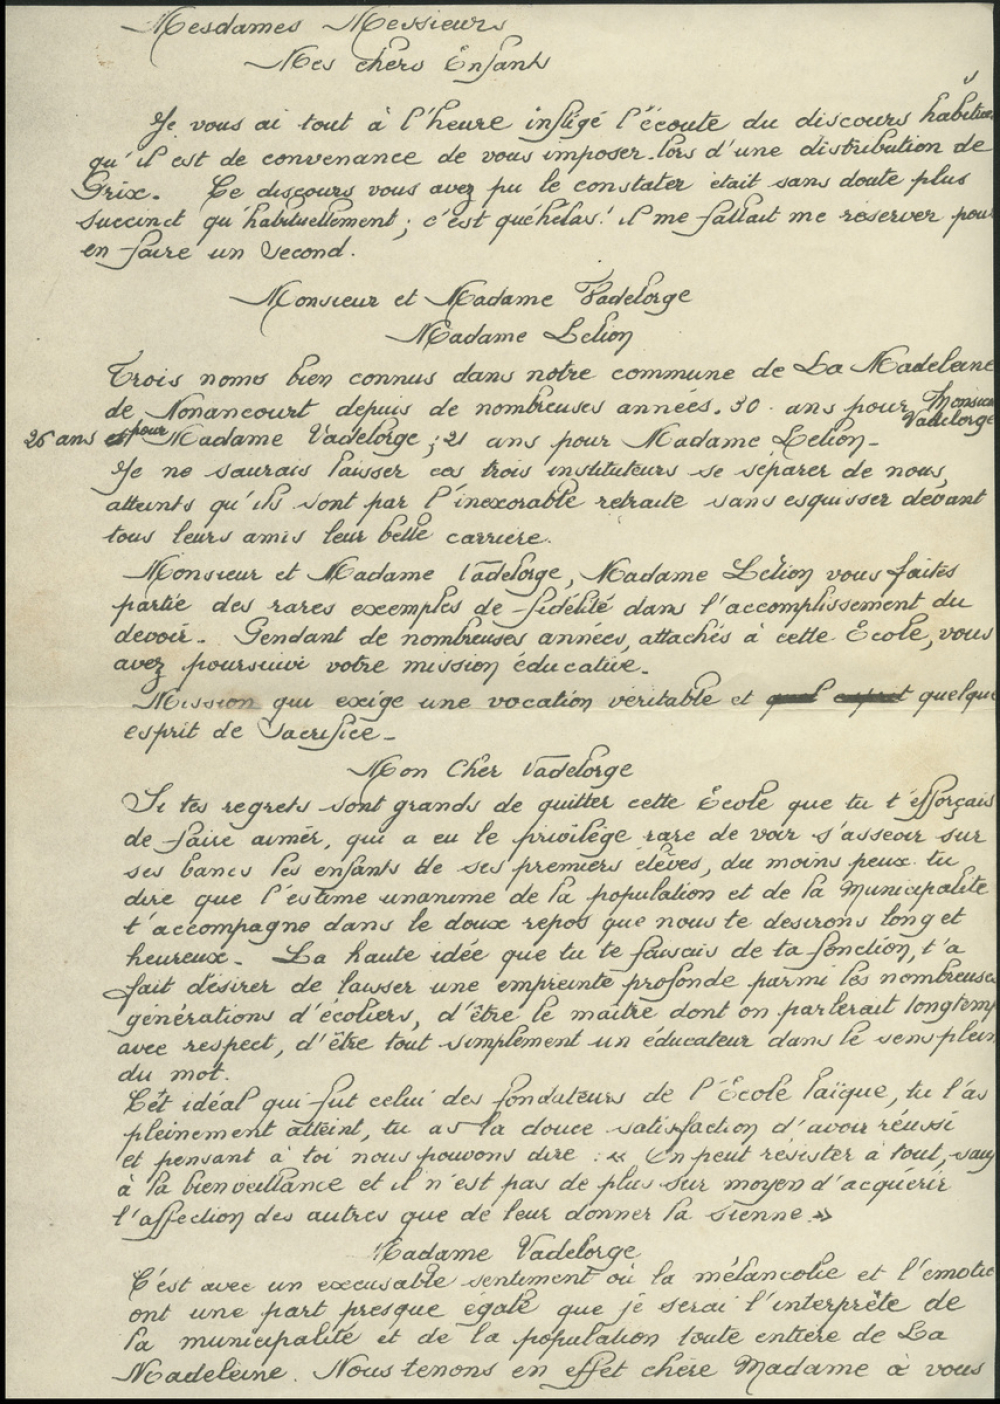 Mesdames Messieurs
Mes chers Enfants
Je vous ai tout à l'heure infligé l'écoute du discours habituel
qu'il est de convenance de vous imposer lors d'une distribution de
Prix. Ce discours vous avez pu le constater était sans doute plus
succinct qu'habituellement ; c'est qu'hélas ! il me fallait me réserver pour
en faire un second.
Monsieur et Madame Vadelorge
Madame Lelion
Trois noms bien connus dans notre commune de La Madeleine
de Nonancourt depuis de nombreuses années. 30 ans pour Monsieur Vadelorge
26 ans pour Madame Vadelorge ; 21 ans pour Madame Lelion -
Je ne saurais laisser ces trois instituteurs se séparer de nous,
atteints qu'ils sont par l'inexorable retraite sans esquisser devant
tous leurs amis leur belle carrière.
Monsieur et Madame Vadelorge, Madame Lelion vous faites
partie des rares exemples de fidélité dans l'accomplissement du
devoir - Pendant de nombreuses années, attachés à cette École, vous
avez poursuivi votre mission éducative -
Mission qui exige une vocation véritable et quel esprit quelque
esprit de sacrifice -
Mon Cher Vadelorge
Si tes regrets sont grands de quitter cette École que tu t'efforçais
de faire aimer, qui a eu le privilège rare de voir s'asseoir sur
ses bancs les enfants de ses premiers élèves, du moins peux-tu
dire que l'estime unanime de la population et de la Municipalité
t'accompagne dans le doux repos que nous te désirons long et
heureux - La haute idée que tu te faisais de ta fonction, t'a
fait désirer de laisser une empreinte profonde parmi les nombreuses
générations d'écoliers, d'être le maître dont on parlerait longtemps
avec respect, d'être tout simplement un éducateur dans le sens plein
du mot.
Cet idéal qui fut celui des fondateurs de l'École laïque, tu l'as
pleinement atteint, tu as la douce satisfaction d'avoir réussi
et pensant à toi nous pouvons dire : « On peut résister à tout, sauf
à la bienveillance et il n'est pas de plus sûr moyen d'acquérir
l'affection des autres que de leur donner la sienne »
Madame Vadelorge
C'est avec un excusable sentiment où la mélancolie et l'émotion
ont une part presque égale que je serai l'interprète de
la municipalité et de la population toute entière de La
Madeleine. Nous tenons en effet chère Madame à vous